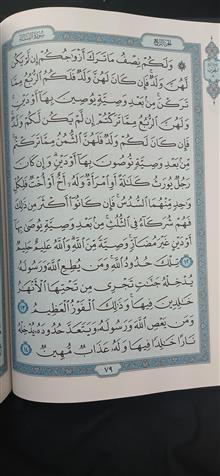 سُورَةُ النِّسَاءِ
الجُزْءُ الرَّابِعُ
۞ وَلَكُمْ نِصْفُ مَا تَرَكَ أَزْوَاجُكُمْ إِن لَّمْ يَكُن
لَّهُنَّ وَلَدٌ فَإِن كَانَ لَهُنَّ وَلَدٌ فَلَكُمُ الرُّبُعُ مِمَّا
تَرَكْنَ مِنۢ بَعْدِ وَصِيَّةٍ يُوصِينَ بِهَا أَوْ دَيْنٍ
وَلَهُنَّ الرُّبُعُ مِمَّا تَرَكْتُمْ إِن لَّمْ يَكُن لَّكُمْ وَلَدٌ
فَإِن كَانَ لَكُمْ وَلَدٌ فَلَهُنَّ الثُّمُنُ مِمَّا تَرَكْتُم
مِّنۢ بَعْدِ وَصِيَّةٍ تُوصُونَ بِهَا أَوْ دَيْنٍ وَإِن كَانَ
رَجُلٌ يُورَثُ كَلَالَةً أَوِ امْرَأَةٌ وَلَهُ أَخٌ أَوْ أُخْتٌ فَلِكُلِّ
وَاحِدٍ مِّنْهُمَا السُّدُسُ فَإِن كَانُوا أَكْثَرَ مِن ذَٰلِكَ
فَهُمْ شُرَكَاءُ فِي الثُّلُثِ مِنۢ بَعْدِ وَصِيَّةٍ يُوصَىٰ بِهَا
أَوْ دَيْنٍ غَيْرَ مُضَارٍّ وَصِيَّةً مِّنَ اللَّهِ وَاللَّهُ عَلِيمٌ حَلِيمٌ
١٢ تِلْكَ حُدُودُ اللَّهِ وَمَن يُطِعِ اللَّهَ وَرَسُولَهُ
يُدْخِلْهُ جَنَّاتٍ تَجْرِي مِن تَحْتِهَا الْأَنْهَارُ
خَالِدِينَ فِيهَا وَذَٰلِكَ الْفَوْزُ الْعَظِيمُ ١٣
وَمَن يَعْصِ اللَّهَ وَرَسُولَهُ وَيَتَعَدَّ حُدُودَهُ يُدْخِلْهُ
نَارًا خَالِدًا فِيهَا وَلَهُ عَذَابٌ مُّهِينٌ ١٤
٧٩